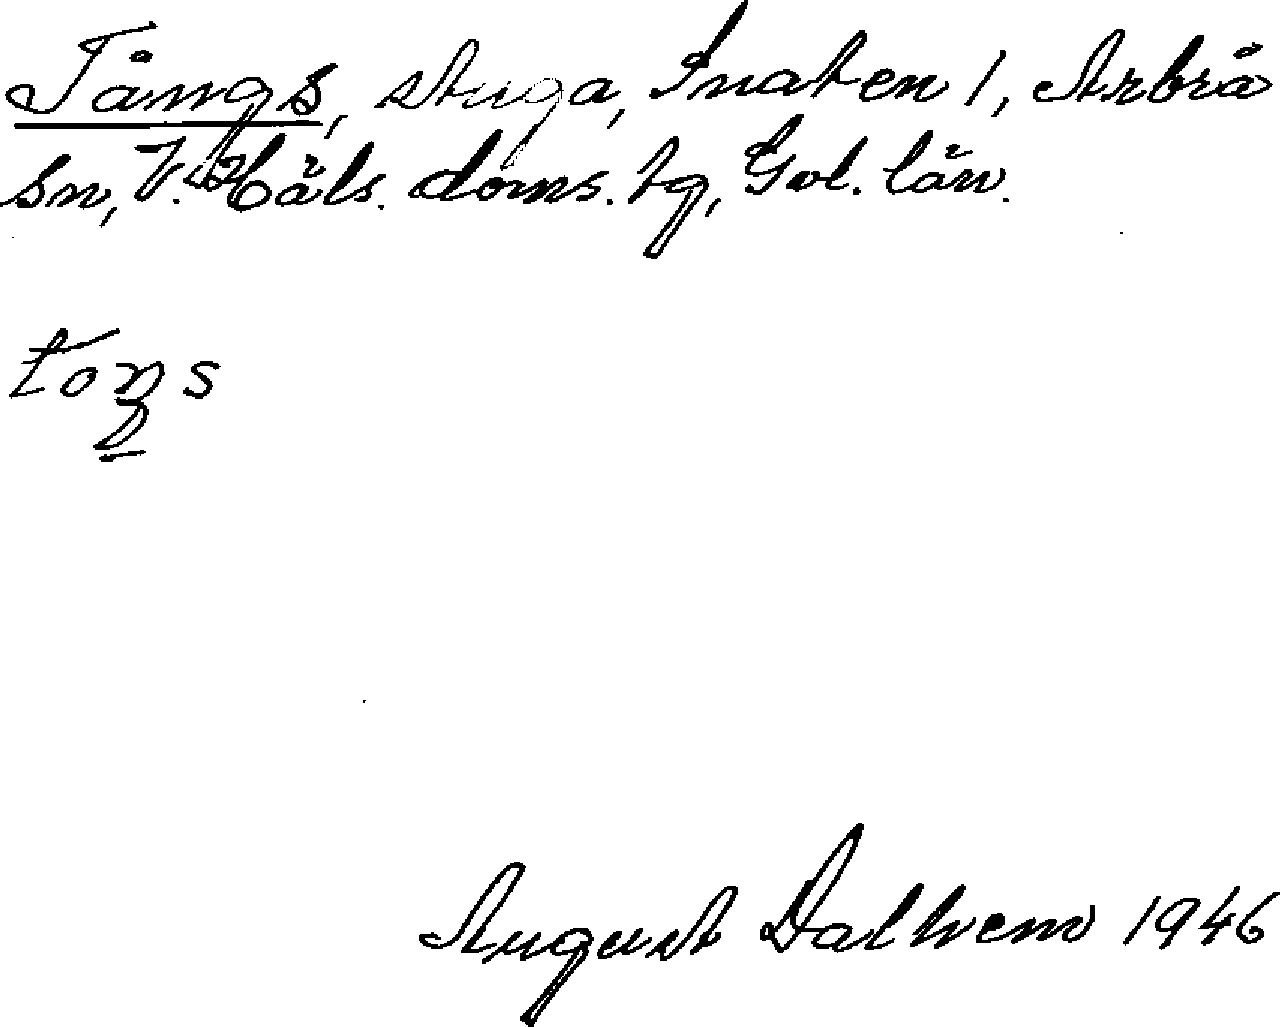 Tångs, stuga, Snaten 1, Arbrå
sn, V. Häls. doms. tg, Gvl. län.
toŋs
August Dalhem 1946